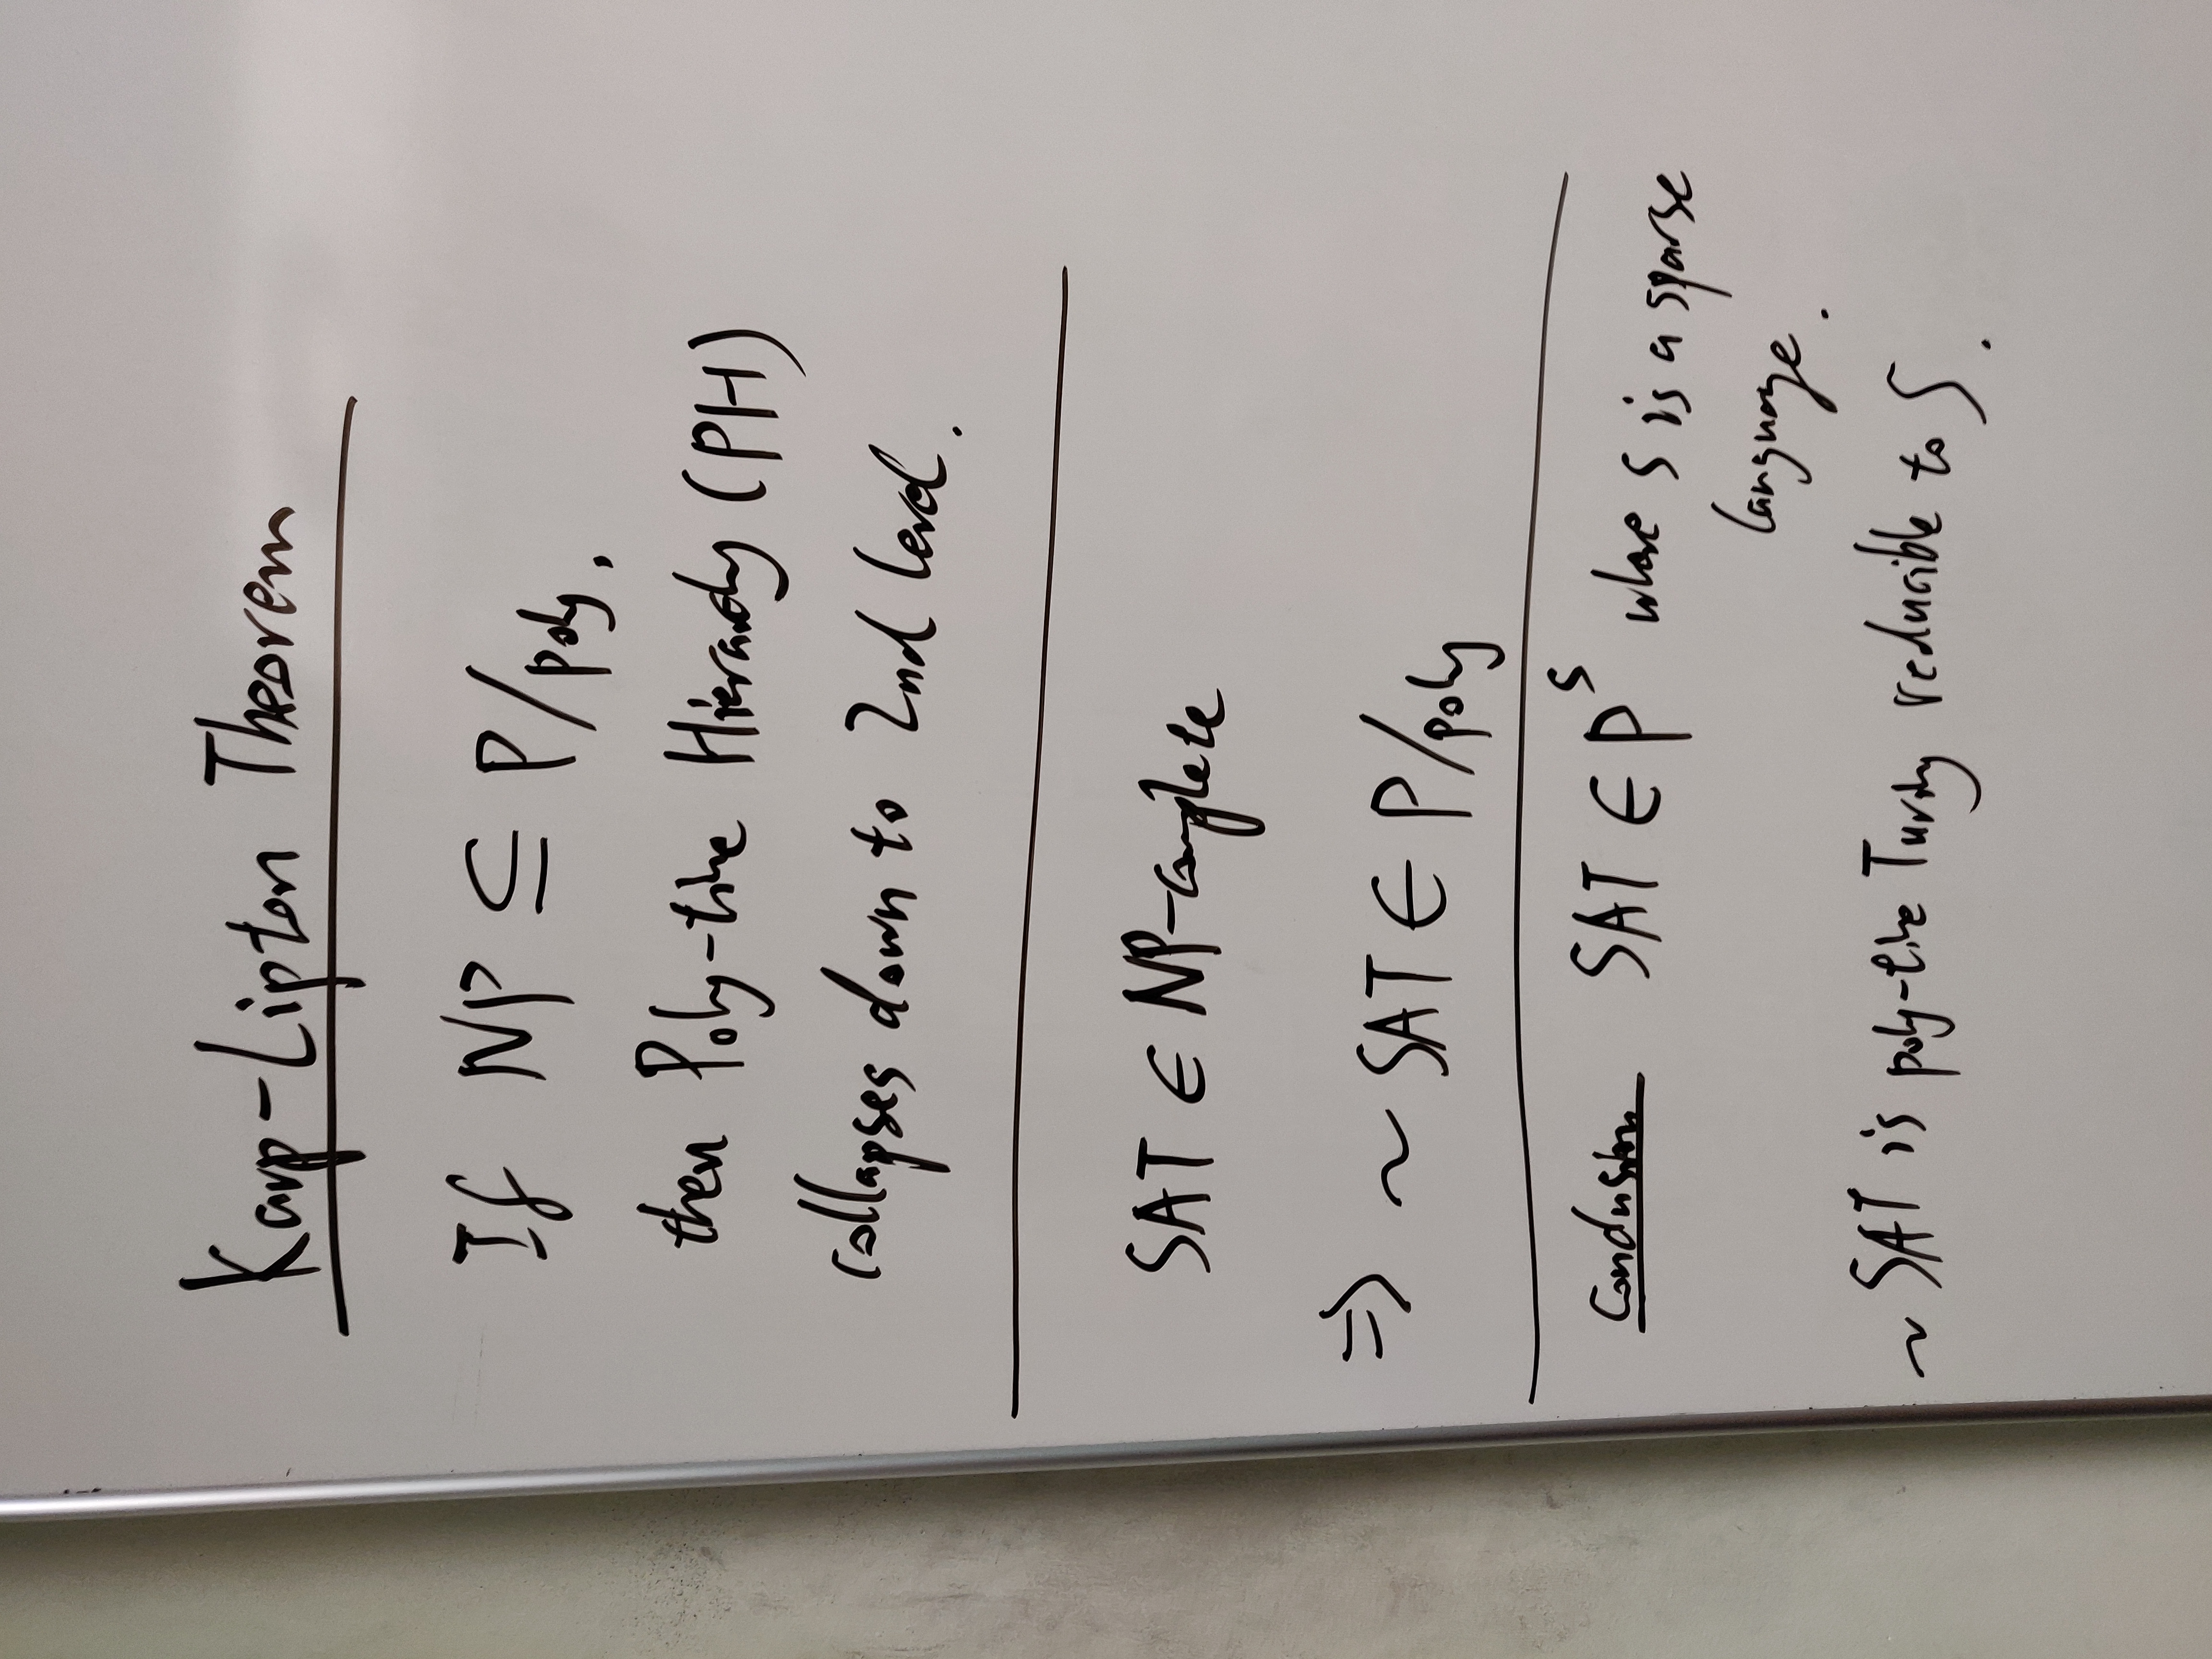 Karp-Lipton Theorem
If NP ⊆ P/poly,
then Poly-time Hierarchy (PH)
collapses down to 2nd level.
SAT ∈ NP-complete
⇒ ~ SAT ∈ P/poly
Conclusion SAT ∈ P^S where S is a sparse
language.
~ SAT is poly-time Turing reducible to S.